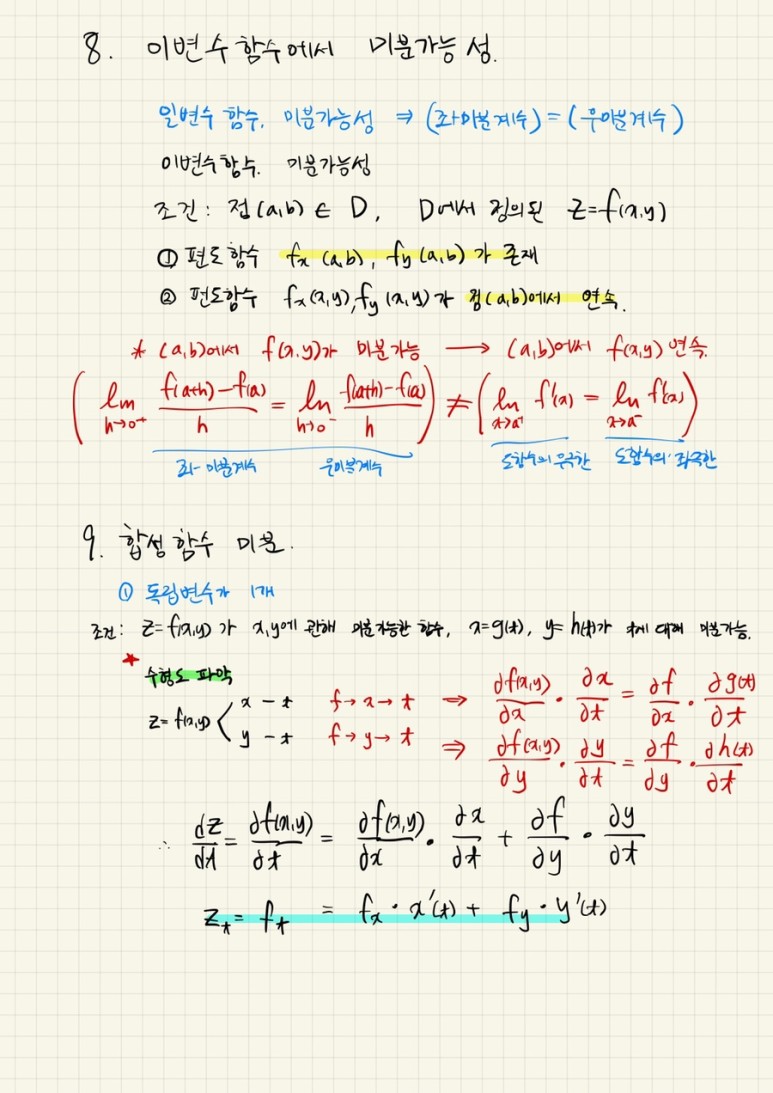 8. 이변수 함수에서 미분가능성.
일변수 함수. 미분가능성 ⇒ (좌미분계수) = (우미분계수)
이변수함수. 미분가능성
조건: 점(a,b) ∈ D, D에서 정의된 z=f(x,y)
① 편도함수 fx(a,b), fy(a,b)가 존재
② 편도함수 fx(x,y), fy(x,y)가 점(a,b)에서 연속.
* (a,b)에서 f(x,y)가 미분가능 → (a,b)에서 f(x,y) 연속.
( lim h→0⁺ f(a+h)-f(a)/h = lim h→0⁻ f(a+h)-f(a)/h ) ≠ ( lim x→a⁺ f'(x) = lim x→a⁻ f'(x) )
좌-미분계수 우미분계수 도함수의 우극한 도함수의 좌극한
9. 합성함수 미분.
① 독립변수가 1개
조건: z=f(x,y)가 x,y에 관해 미분가능한 함수, x=g(t), y=h(t)가 t에 대해 미분가능.
* 수형도 파악
z=f(x,y) < x - t f→x→t ⇒ ∂f(x,y)/∂x · ∂x/∂t = ∂f/∂x · ∂g(t)/∂t
y - t f→y→t ⇒ ∂f(x,y)/∂y · ∂y/∂t = ∂f/∂y · ∂h(t)/∂t
∴ dz/dt = ∂f(x,y)/∂t = ∂f(x,y)/∂x · ∂x/∂t + ∂f/∂y · ∂y/∂t
zt = ft = fx · x'(t) + fy · y'(t)